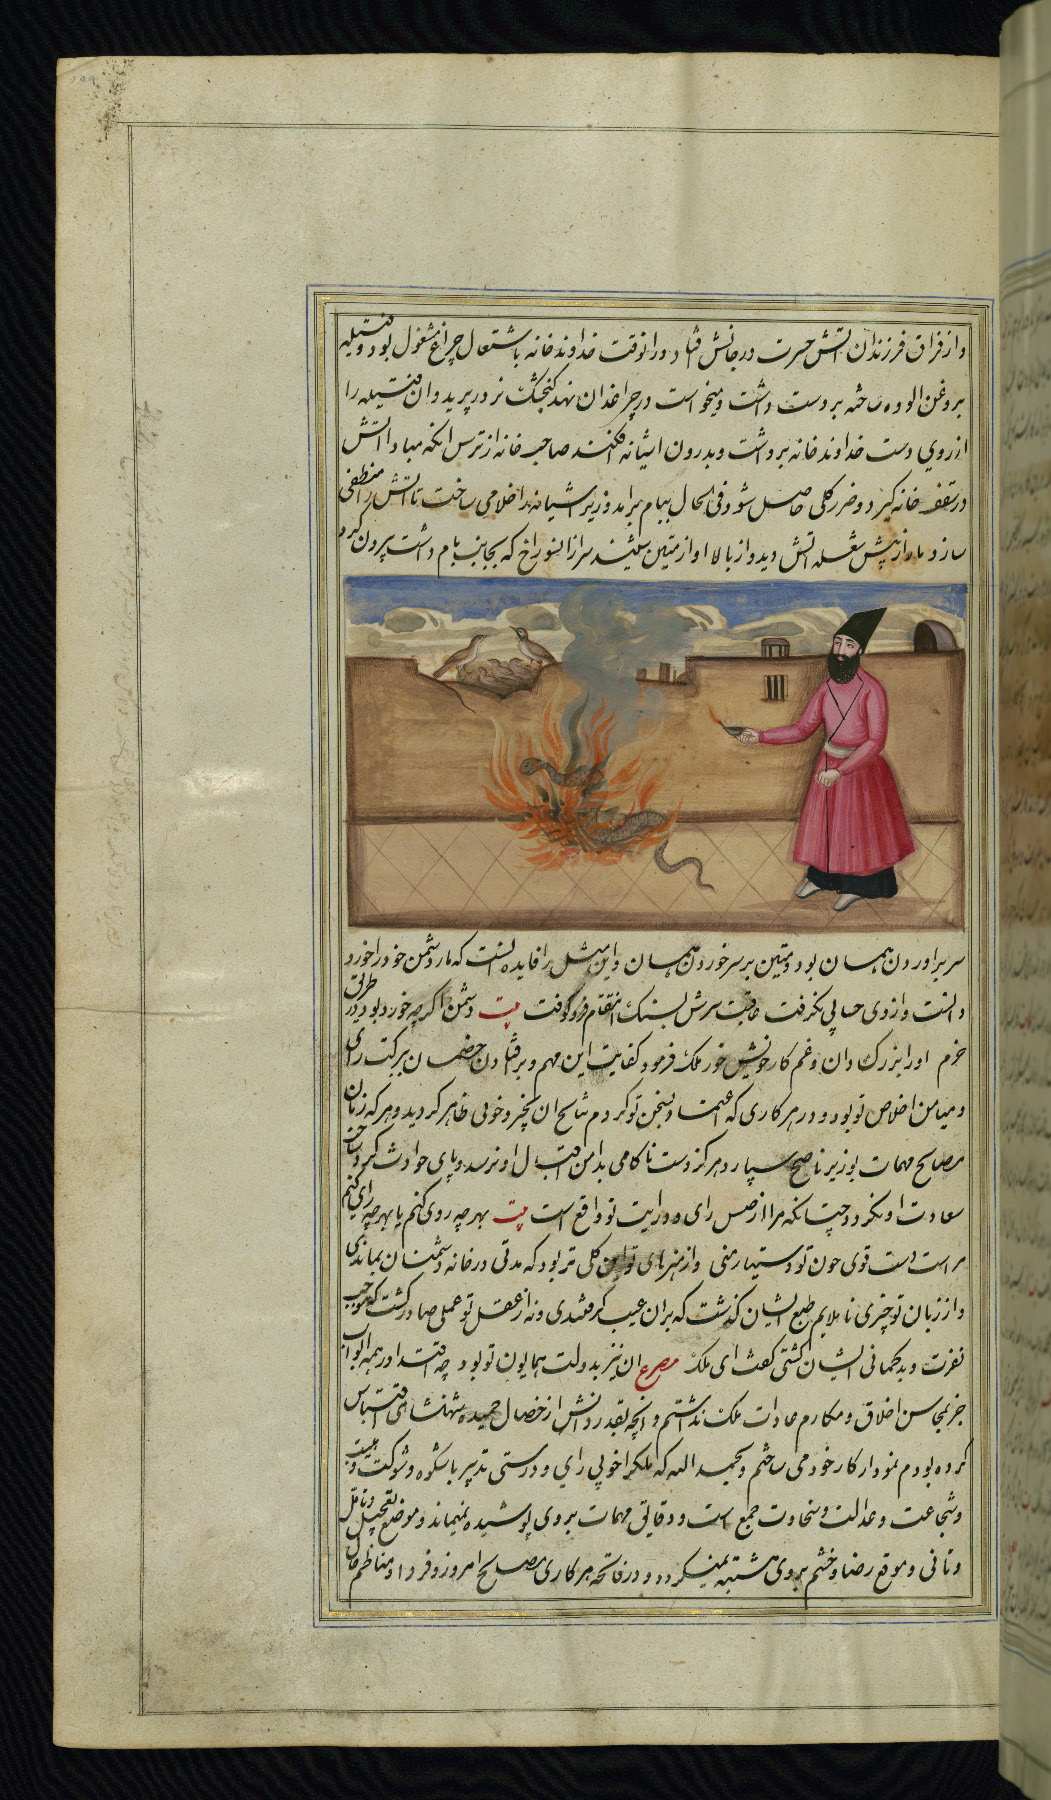 و از فراق فرزندان آتش حسرت در جانش افتاد در آنوقت خداوند خانه باشتعال چراغ مشغول بود و فتیله
بروغن آلوده ساخته بر دست داشت و میخواست در چراغدان نهد کنجشک نر در پرید و آن فتیله را
از روی دست خداوند خانه برداشت و بدرون آشیانه افکند صاحب خانه از ترس آنکه مبادا آتش
در سقف خانه کیرد و ضرر کلی حاصل شود فی الحال ببام برآمد و زیر آشیانه را خالی می ساخت تا آتش را منطفی
سازد مار از پیش شعله آتش دید و از بالا آواز متین شنید سر از آن سوراخ که بجانب بام داشت بیرون کرد
سر برآوردن همان بود و متین بر سر خوردن همان و این مثل را فایده آنست که مار دشمن خود را خورد
دانست و از وی حسابی نکرفت عاقبت سرش بسنک انتقام فرو کوفت بیت دشمن اکرچه خورد بود در طریق
حزم او را بزرک دان و غم کار خویش خور ملک فرمود کفایت این مهم و برافتادن خصمان ببرکت رای
و میامن اخلاص تو بود و در هر کاری که اعتماد بر سخن تو کردم نتایج آن بخیر و خوبی ظاهر کردید و هر که زمام
مصالح مهمات بوزیر ناصح سپارد هرکز دست ناکامی بدامن اقبال او نرسد و پای حوادث کرد ساحت
سعادت او نکردد چنانکه مرا از حسن رای و درایت تو واقع است بیت بهرچه روی کنم یا بهرچه رای کنم
مراست دست قوی چون تو دستیار منی و از هنرهای تو این کلی تر بود که مدتی در خانه دشمنان بماندی
و از زبان تو چیزی ناملایم طبع ایشان نکذشت که بران عیب کرفتندی و نه از عقل تو عملی صادر کشت که موجب
نفرت و بدکمانی ایشان کشتی کفت ای ملک مصرع آن نیز بدولت همایون تو بود چه اقتدا در همه ابواب
جز بمحاسن اخلاق و مکارم عادات ملک نداشتم و آنچه بقدر دانش از خصال حمیده شهنشاهی اقتباس
کرده بودم نمودار کار خود می ساختم و بحمد الله که ملک را خوبی رای و درستی تدبیر با شکوه و شوکت و هیبت
و شجاعت و عدالت و سخاوت جمع است و دقایق مهمات بر وی پوشیده نمیماند و موضع تعجیل و تامل
و تانی و موقع رضا و خشم بر وی مشتبه نمیکردد و در فاتحه هر کاری مصالح امروز و فردا و مناظم حال